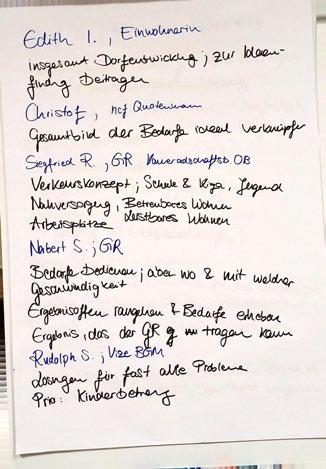 Edith I., Einwohnerin
insgesamt Dorfentwicklung; zur Ideen-
findg beitragen
Christof, Quotenmann
Gesamtbild der Bedarfe ideal verknüpfen
Siegfried R., GR Kameradschaftsb OB
Verkehrskonzept; Schule & Kiga, Jugend
Nahversorgung, Betreubares Wohnen
Arbeitsplätze Leistbares Wohnen
Norbert S.; GR
Bedarfe bedienen; aber wo & mit welcher
Geschwindigkeit
Ergebnisoffen rangehen & Bedarfe erheben
Ergebnis, das der GR tragen kann
Rudolph S.; Vize BGM
Lösungen für fast alle Probleme
Prio: Kinderbetreug